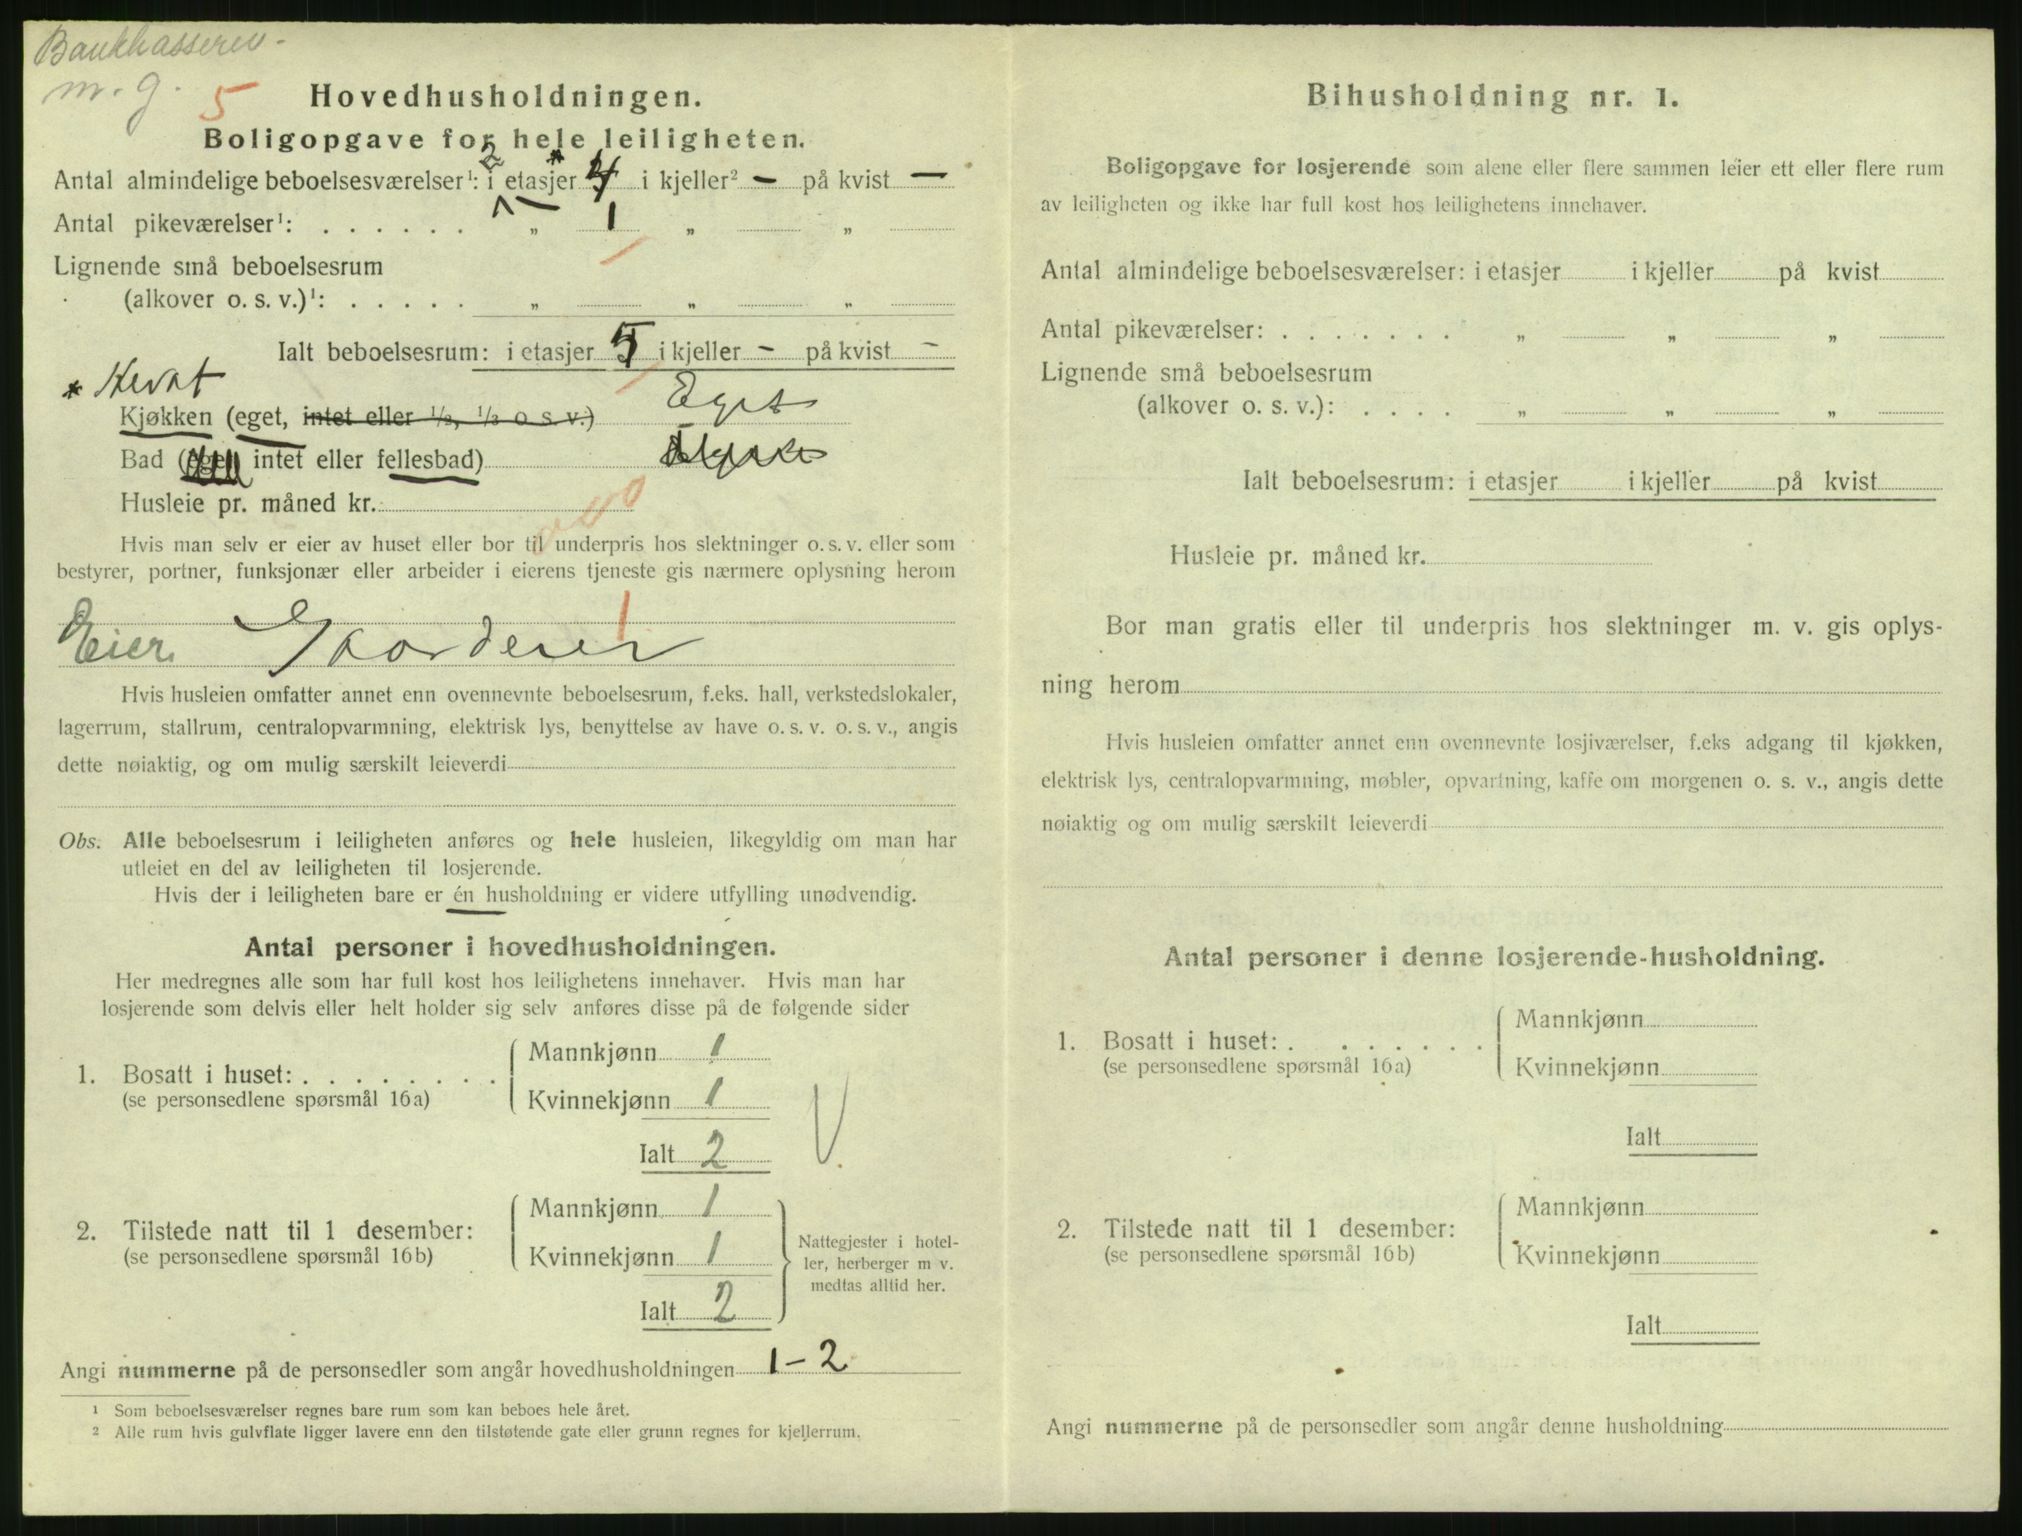 Bankkasserer -
m. g. 5
Hovedhusholdningen.
Boligopgave for hele leiligheten.
2 *
Antal almindelige beboelsesværelser¹: i etasjer 4 i kjeller² — på kvist —
Antal pikeværelser¹: . . . . . . „ 1 „ „
Lignende små beboelsesrum
(alkover o. s. v.)¹: . . . . . „ „ „
Ialt beboelsesrum: i etasjer 5 i kjeller — på kvist —
*
Kjøkken (eget, intet eller ½, ⅓ o s. v.) Eget
Bad (eget, intet eller fellesbad)
Husleie pr. måned kr.
Hvis man selv er eier av huset eller bor til underpris hos slektninger o. s. v. eller som
bestyrer, portner, funksjonær eller arbeider i eierens tjeneste gis nærmere oplysning herom
1
Eier. Gaardeier
Hvis husleien omfatter annet enn ovennevnte beboelsesrum, f.eks. hall, verkstedslokaler,
lagerrum, stallrum, centralopvarmning, elektrisk lys, benyttelse av have o. s. v. o. s. v., angis
dette nøiaktig, og om mulig særskilt leieverdi
Obs. Alle beboelsesrum i leiligheten anføres og hele husleien, likegyldig om man har
utleiet en del av leiligheten til losjerende.
Hvis der i leiligheten bare er én husholdning er videre utfylling unødvendig.
Antal personer i hovedhusholdningen.
Her medregnes alle som har full kost hos leilighetens innehaver. Hvis man har
losjerende som delvis eller helt holder sig selv anføres disse på de følgende sider
1. Bosatt i huset: . . . . . . . .
(se personsedlene spørsmål 16a)
Mannkjønn 1
Kvinnekjønn 1
Ialt 2
V
2. Tilstede natt til 1 desember:
(se personsedlene spørsmål 16b)
Mannkjønn 1
Kvinnekjønn 1
Ialt 2
Nattegjester i hotel-
ler, herberger m v.
medtas alltid her.
Angi nummerne på de personsedler som angår hovedhusholdningen 1 – 2
¹ Som beboelsesværelser regnes bare rum som kan beboes hele året.
² Alle rum hvis gulvflate ligger lavere enn den tilstøtende gate eller grunn regnes for kjellerrum.
Bihusholdning nr. 1.
Boligopgave for losjerende som alene eller flere sammen leier ett eller flere rum
av leiligheten og ikke har full kost hos leilighetens innehaver.
Antal almindelige beboelsesværelser: i etasjer i kjeller på kvist
Antal pikeværelser: . . . . . . . „ „ „
Lignende små beboelsesrum
(alkover o. s. v.): . . . . „ „ „
Ialt beboelsesrum: i etasjer i kjeller på kvist
Husleie pr. måned kr.
Bor man gratis eller til underpris hos slektninger m. v. gis oplys-
ning herom
Hvis husleien omfatter annet enn ovennevnte losjiværelser, f.eks adgang til kjøkken,
elektrisk lys, centralopvarmning, møbler, opvartning, kaffe om morgenen o. s. v., angis dette
nøiaktig og om mulig særskilt leieverdi
Antal personer i denne losjerende-husholdning.
1. Bosatt i huset: . . . . . . .
(se personsedlene spørsmål 16a)
Mannkjønn
Kvinnekjønn
Ialt
2. Tilstede natt til 1 desember:
(se personsedlene spørsmål 16b)
Mannkjønn
Kvinnekjønn
Ialt
Angi nummerne på de personsedler som angår denne husholdning